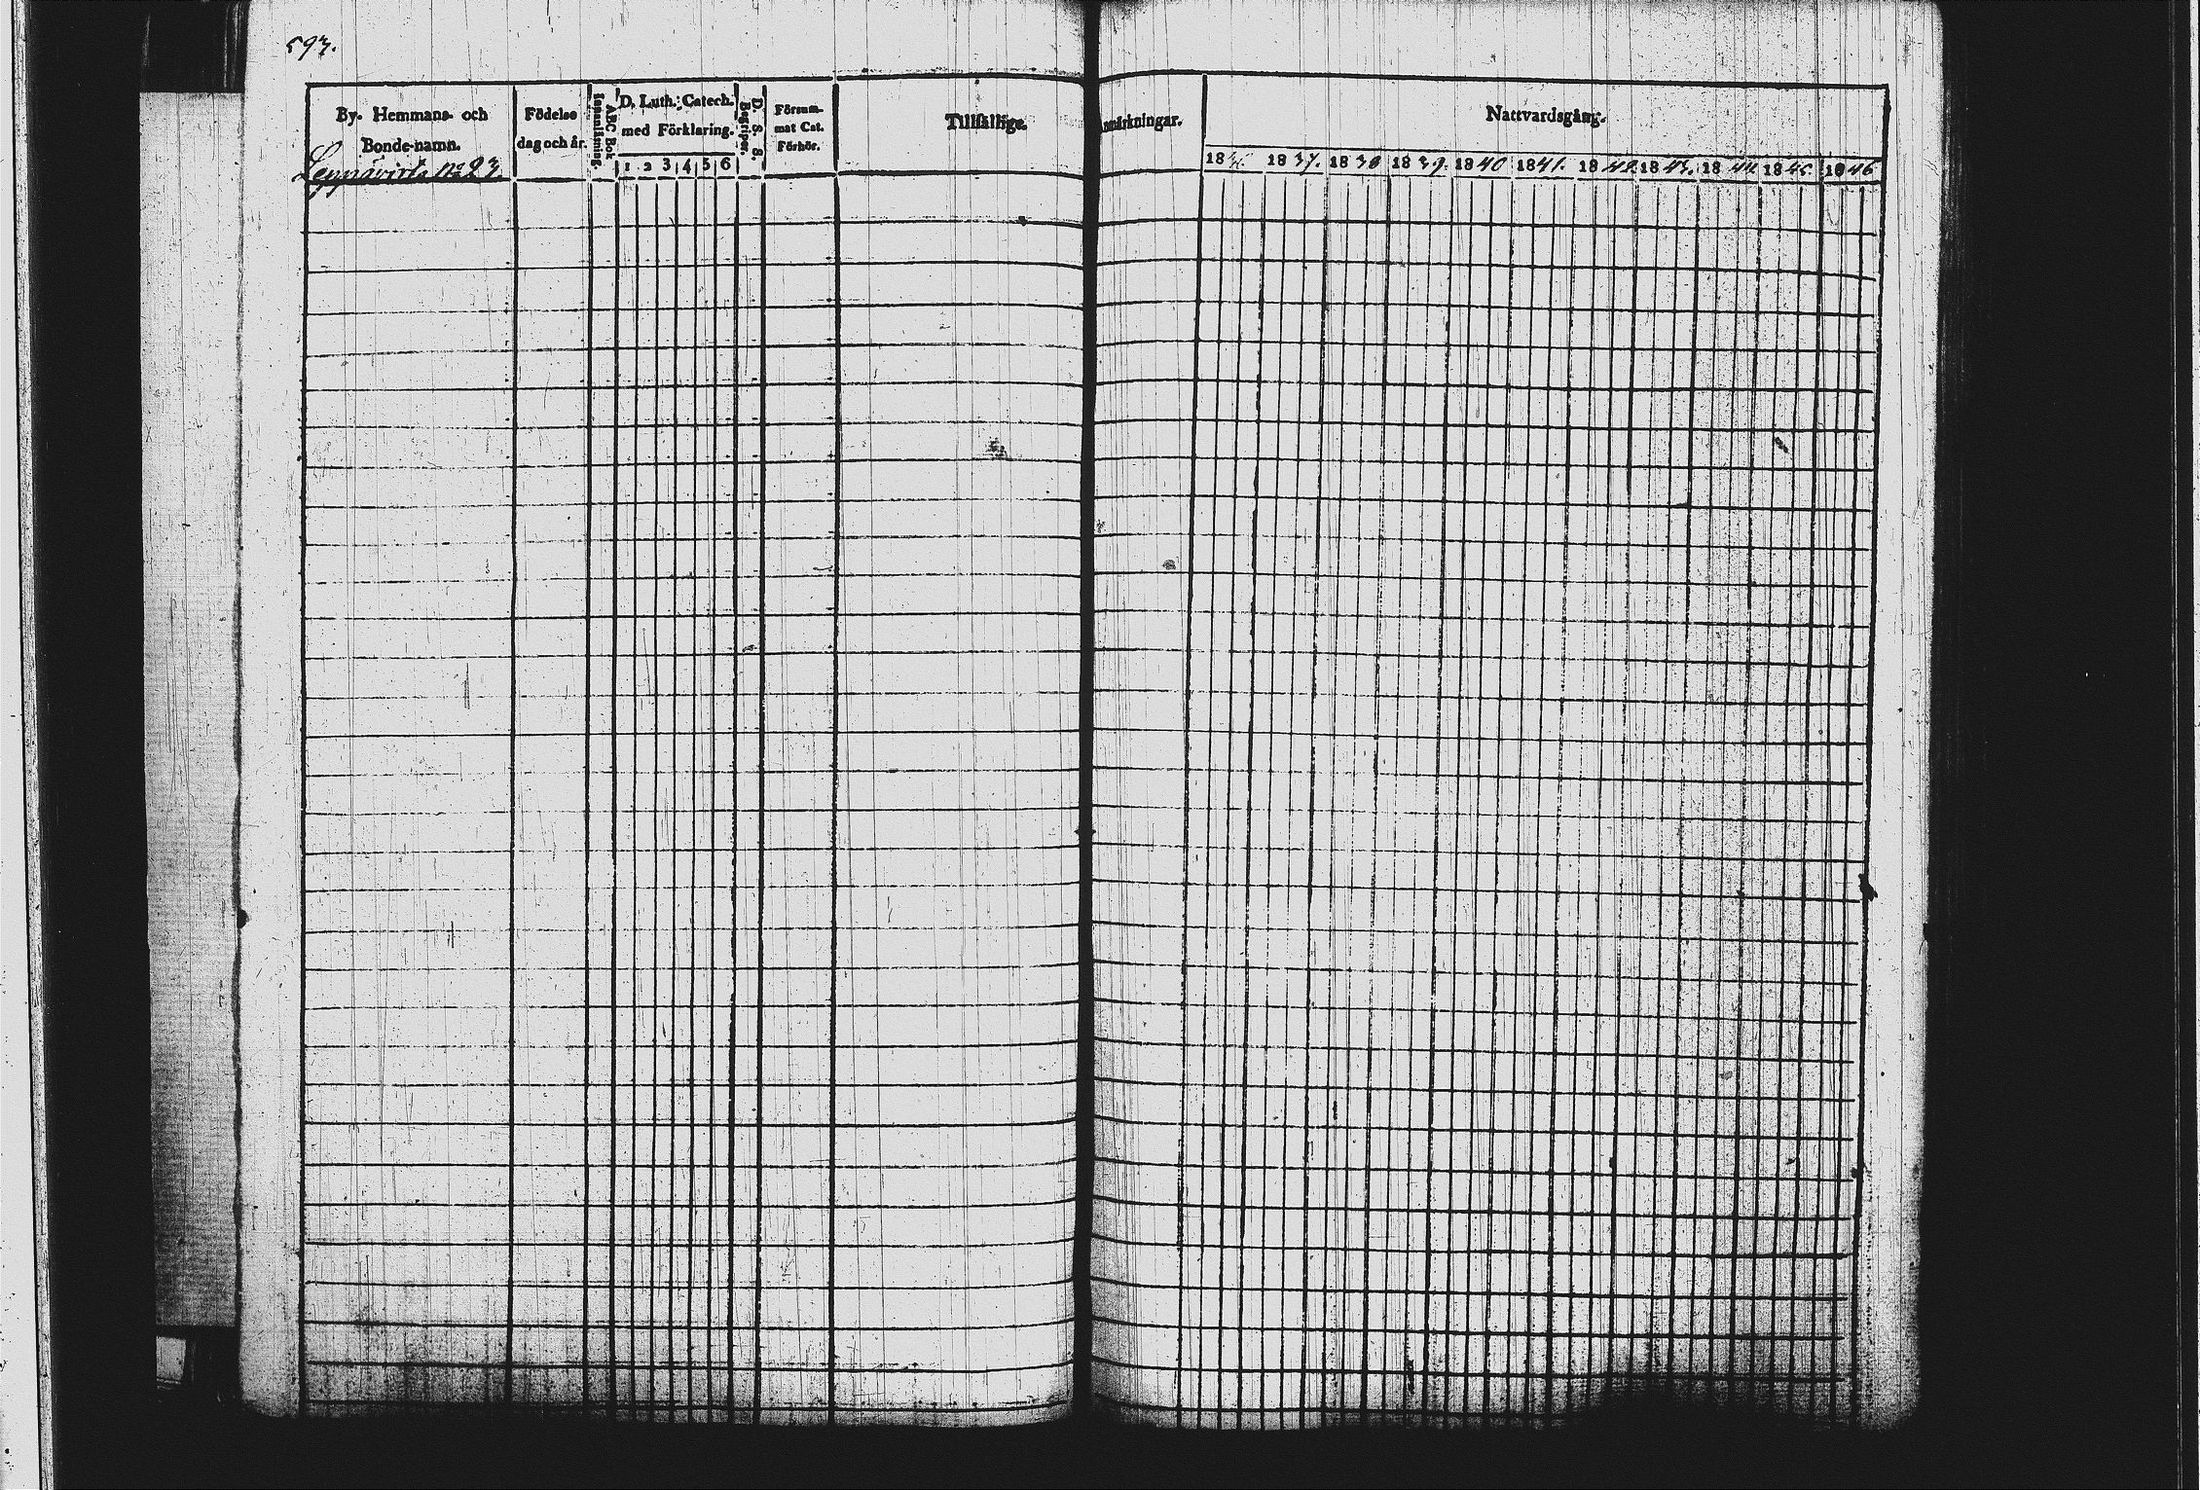 593.
By- Hemmans- och
Bonde-namn.
Leppävirta No 23
Födelse
dag och år.
ABC Bok
Innanläsning.
D. Luth. Catech.
med Förklaring.
1 2 3 4 5 6
D. S. S.
Begriper.
Försum-
mat Cat.
Förhör.
Tillfällige
Anmärkningar.
Nattvardsgång.
18 1837. 1838 1839. 1840 1841. 1842. 1843. 1844. 1845. 1846